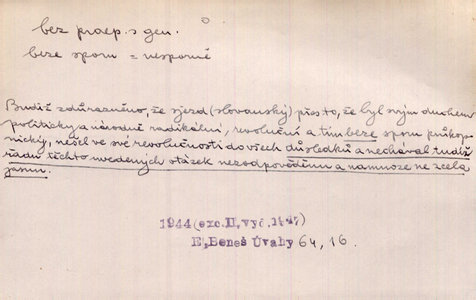 bez praep. s gen.
beze sporu = nesporně
Budiž zdůrazněno, že sjezd (slovanský) přes to, že byl svým duchem
politicky a národně radikální, revoluční a tím beze sporu průkop-
nický, nešel ve své revolučnosti do všech důsledků a nechával tudíž
řadu těchto uvedených otázek nezodpověděnu a namnoze ne zcela
jasnu.
1944 (exc. II, vyč. 1947)
E. Beneš Úvahy 64, 16.